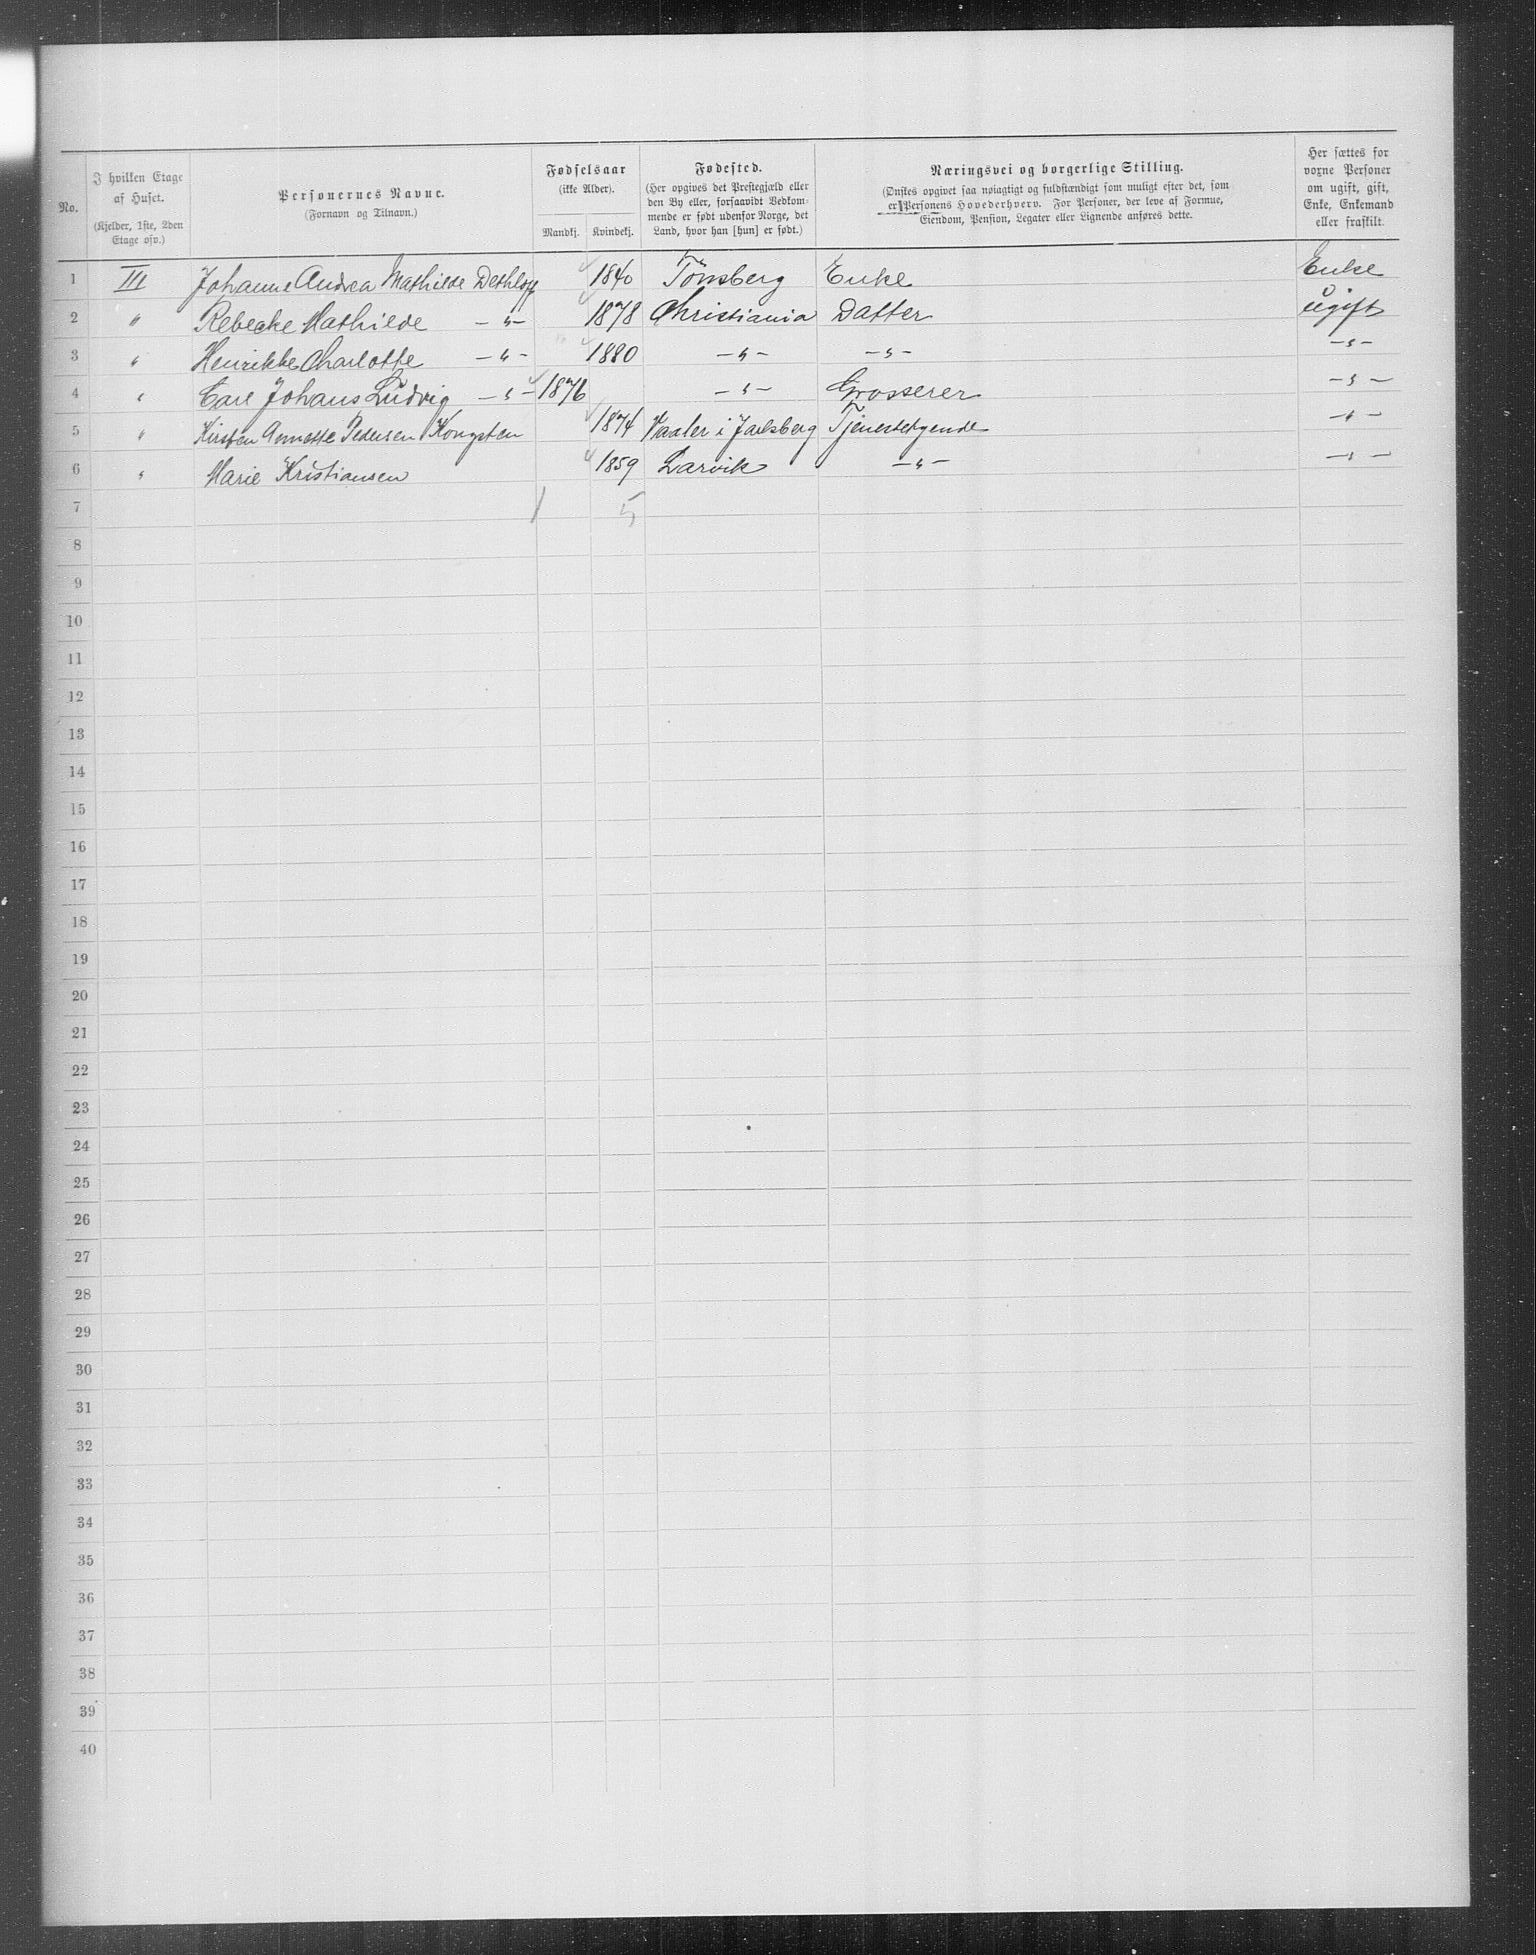 No. | I hvilken Etage af Huset. (Kjelder, 1ste, 2den Etage osv.) | Personernes Navne. (Fornavn og Tilnavn.) | Fødselsaar (ikke Alder). Mandkj. Kvindekj. | Fødested. (Her opgives det Prestegjæld eller den By eller, forsaavidt Vedkommende er født udenfor Norge, det Land, hvor han [hun] er født.) | Næringsvei og borgerlige Stilling. (Ønskes opgivet saa nøiagtigt og fuldstændigt som muligt efter det, som er Personens Hovederhverv. For Personer, der leve af Formue, Eiendom, Pension, Legater eller Lignende anføres dette. | Her sættes for voxne Personer om ugift, gift, Enke, Enkemand eller fraskilt.
1 III Johanne Andrea Mathilde Dethloff 1840 Tönsberg Enke Enke
2 " Rebecke Mathilde —"— 1878 Christiania Datter ugift
3 " Henrikke Charlotte —"— 1880 —"— —"— —"—
4 " Carl Johans Ludvig —"— 1876 —"— Grosserer —"—
5 " Kirsten Annette Pedersen Kongsten 1874 Vaaler i Jarlsberg Tjenestetyende —"—
6 " Marie Kristiansen 1859 Larvik —"— —"—
7 1 5
8
9
10
11
12
13
14
15
16
17
18
19
20
21
22
23
24
25
26
27
28
29
30
31
32
33
34
35
36
37
38
39
40